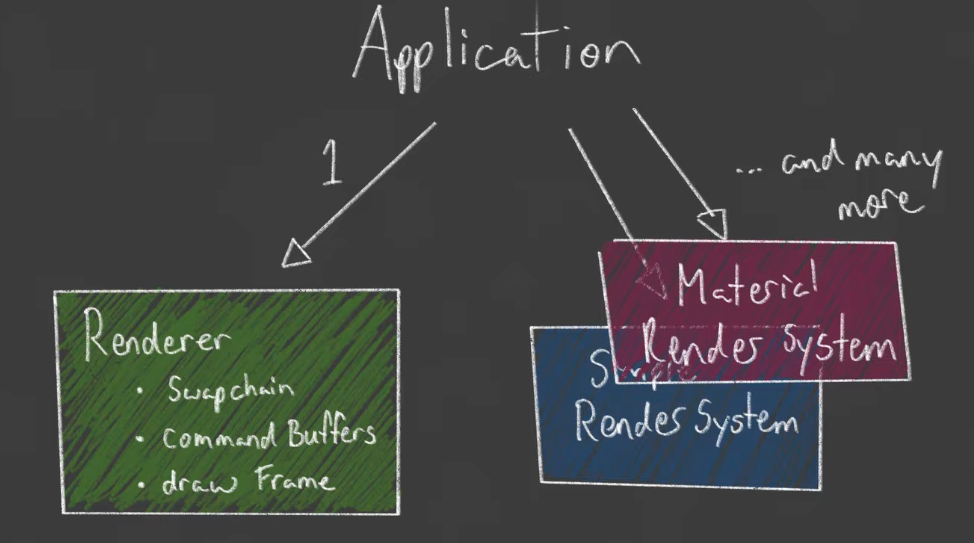 Application
1
... and many
more
Renderer
• Swapchain
• Command Buffers
• draw Frame
Material
Render System
Simple
Render System